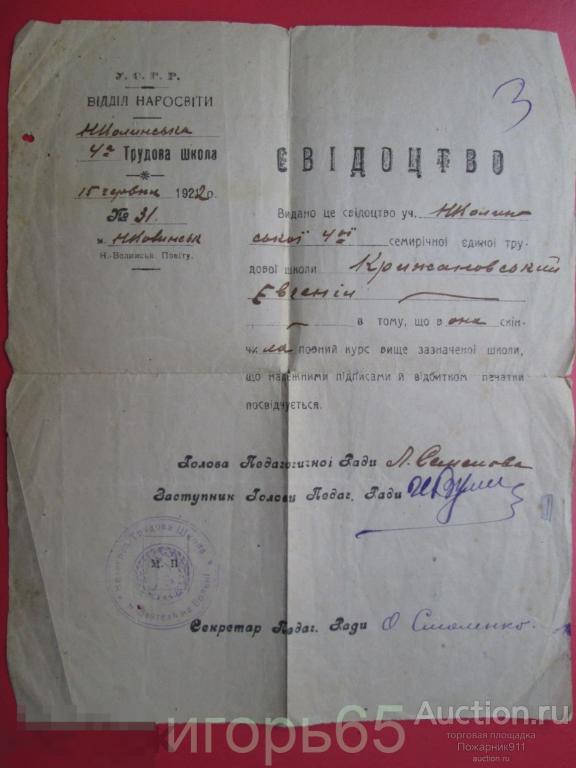 У. С. Т. Р.
ВІДДІЛ НАРОСВІТИ
4а Трудова школа
15 червня 1922 р.
№ 31.
м.
Н.-Волинськ. Повіту.
3
СВІДОЦТВО
Видано це свілоцтво уч.
ської 4ої семирічної єдиної тру-
дової школи Крижановський
Євгенії
в тому, що вона скін-
чила повний курс вище зазначеної школи,
що належними підписами й відбитком печатки
посвідчується.
Голова Педагогічної Ради Л. Семенова
Заступник Голови Педаг. Ради
М. П.
Секретар Педаг. Ради О. Смоленко.
игорь65
Auction.ru
торговая площадка
Пожарник911
auction.ru